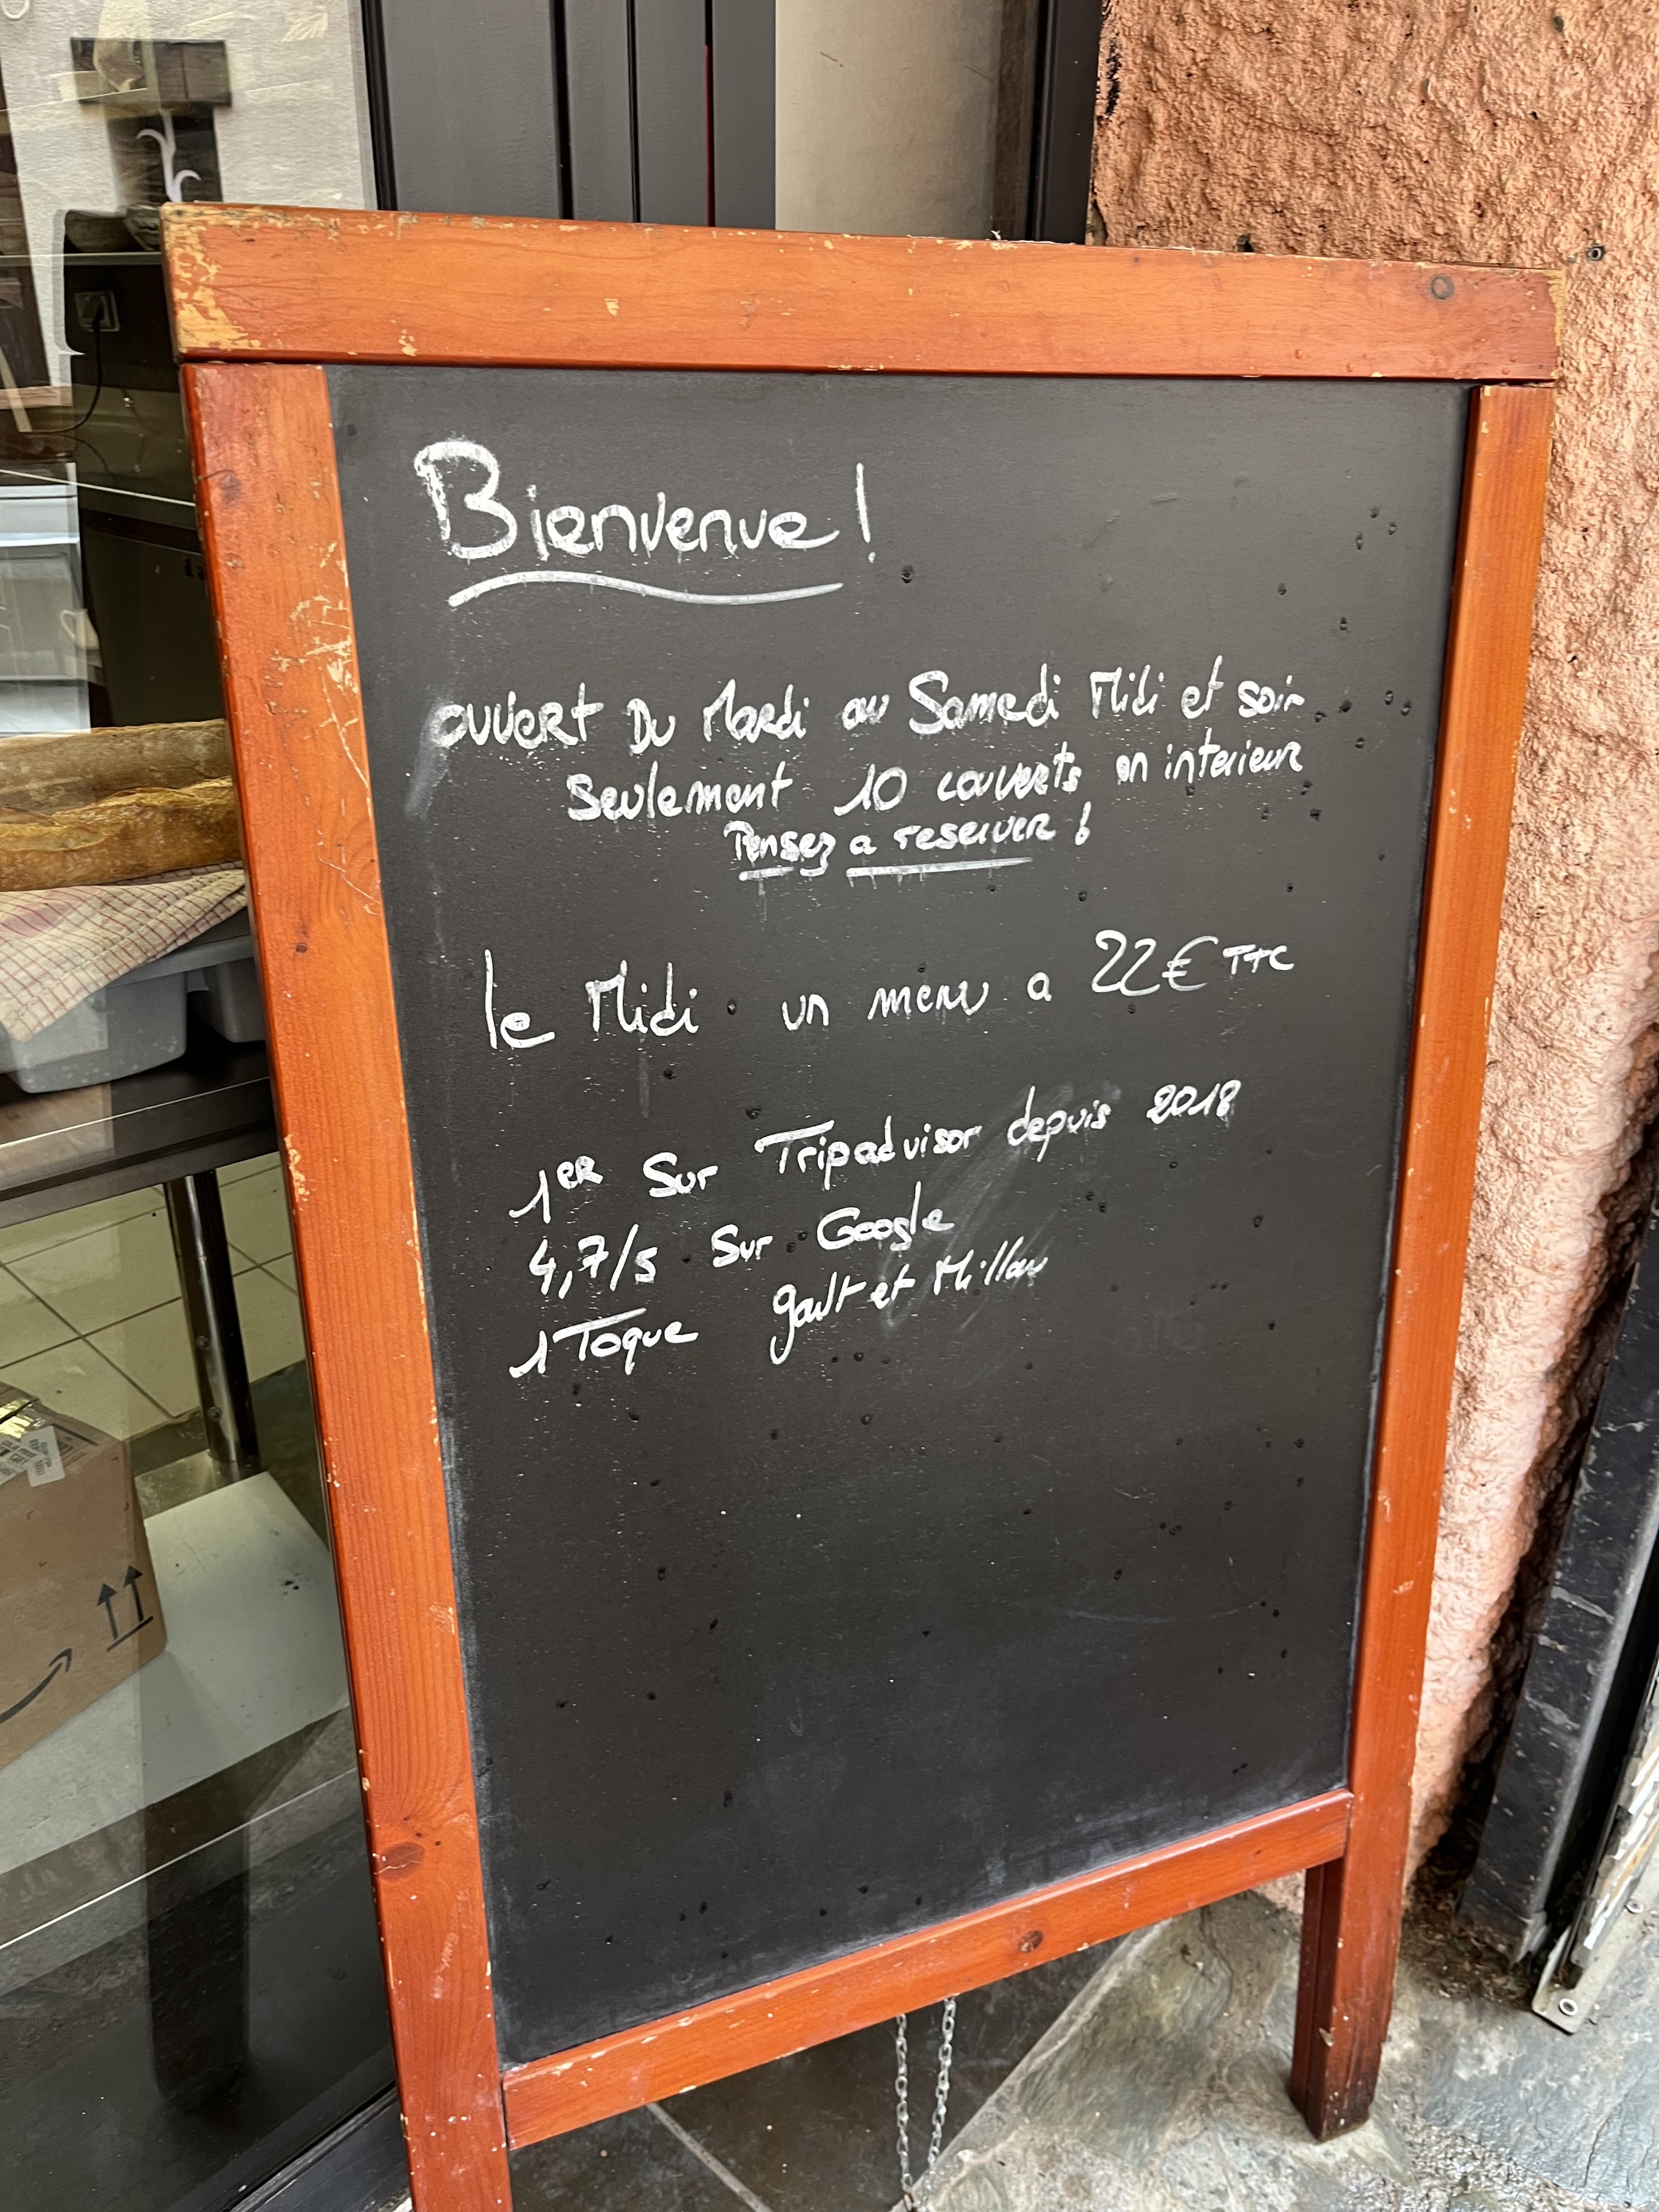 Bienvenue !
ouvert Du Mardi au Samedi Midi et soir
Seulement 10 couverts en interieur
Pensez a reserver !
le Midi un menu a 22€ TTC
1er Sur Tripadvisor depuis 2018
4,7/5 Sur Google
1 Toque gault et Millau